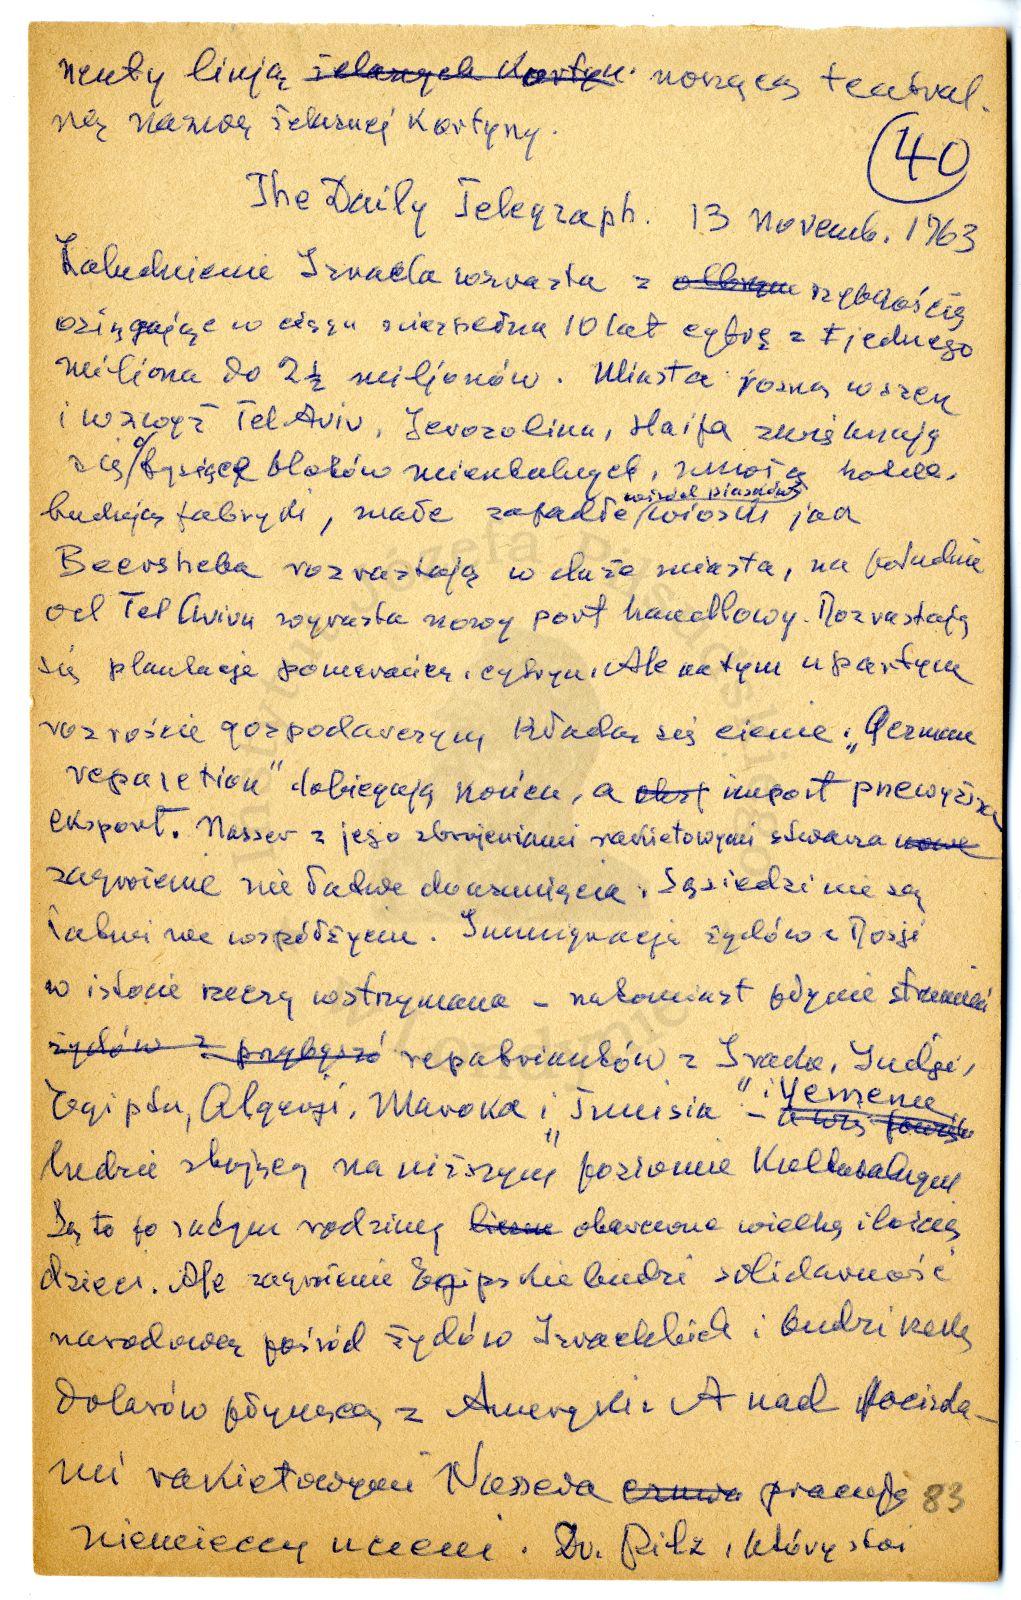 nenty linją żelaznych Kortyn. noszącą teatral-
ną nazwę żelaznej Kortyny.
40
The Daily Telegraph. 13 Novemb. 1963
Zaludnienie Izraela wzrasta z olbrzym szybkością
osiągając w ciągu niespełna 10 lat cyfrę z jednego
miljona do 2½ miljonów. Miasta rosną wszerz
i wzwyż Tel Aviv, Jerozolima, Haifa
się tysiące bloków mieszkalnych, hotele,
budują fabryki, małe zapadłe wśród piasków wioski jak
Beersheba rozrastają w duże miasta, na południe
od Tel Avivu wyrasta nowy port handlowy. Rozrastają
się plantacje pomarańcz, cytryn. Ale na tym upartym
rozroście gospodarczym kładą się cienie. "German
reparation" dobiegają końca, a import przewyższa
eksport. Nasser z jego zbrojeniami rakietowymi stwarza nowe
zagrożenie nie łatwe do usunięcia. Sąsiedzi nie są
łatwi we współżyciu. Immigracja żydów z Rosji
w istocie rzeczy wstrzymana – natomiast płynie strumień
żydów z przybyszó repatriantów z Iraku, Indji,
Egiptu, Algerji, Maroka i "Tunisia" – i Yemenu
ludzie stojący na niższym poziomie Kulturalnym
Są to po rodziny liczne obarczone wielką ilością
dzieci. Ale zagrożenie Egipskie budzi solidarność
narodową pośród żydów Izraelskich i budzi rzeką
Dolarów płynącą z Ameryki. A nad pociska-
mi rakietowymi Nassera czuwa pracują
83
niemieccy uczeni. Dr. Pilz, który stoi